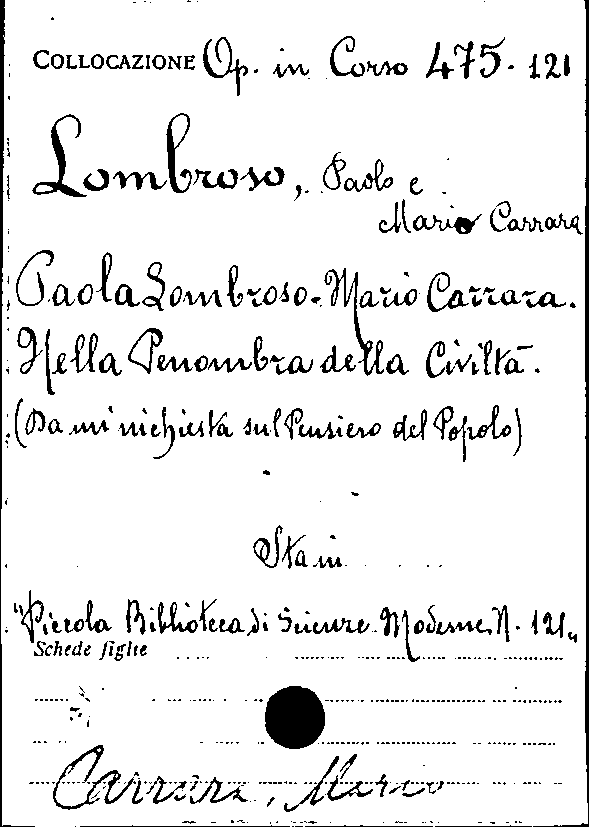 COLLOCAZIONE Op. in Corso 475. 121
Lombroso, Paolo e
Mario Carrara
Paola Lombroso. Mario Carrara.
Nella Penombra della Civiltà.
(Da un'inchiesta sul Pensiero del Popolo)
Sta in
"Piccola Biblioteca di Scienze Moderne N. 121"
Schede figlie
Carrara, Mario